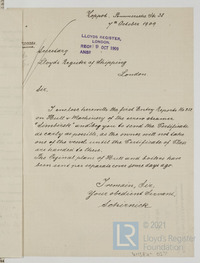 Zoppot,
7th October 1909
LLOYD'S REGISTER,
LONDON.
9 OCT 1909
Secretary
Lloyd's Register of Shipping
London
Sir,
I enclose herewith the first Entry Reports No
on Hull & Machinery of the screw steamer
asking you to send the Certificates
as early as possible, as the owner will not take
over the vessel until the Certificates of Class
are handed to them.
The Profiles plan of Hull and boilers have
been sent per separate cover some days ago.
I remain, Sir,
Your obedient Servant,
© 2021
Lloyd's Register
Foundation